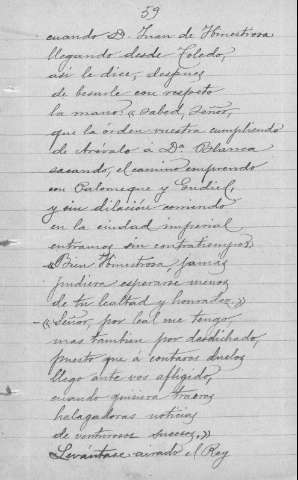 59
cuando D. Juan de Hinestrosa
llegando desde Toledo,
asi le dice, despues
de besarle con respeto
la mano: «Sabed, Señor,
que la órden vuestra cumpliendo
de Arévalo á Dª Blanca
sacando, el camino emprendo
con Palomeque y Gudiel,
y sin dilación corriendo
en la ciudad imperial
entramos sin contratiempos»
«Bien Hinestrosa jamas
pudiera esperarse menos
de tu lealtad y honradez.»
—«Señor, por leal me tengo,
mas tambien por desdichado,
puesto que á contaros duelos
llego ante vos afligido,
cuando quisiera traeros
halagadoras noticias
de venturosos sucesos.»
Levántase airado el Rey